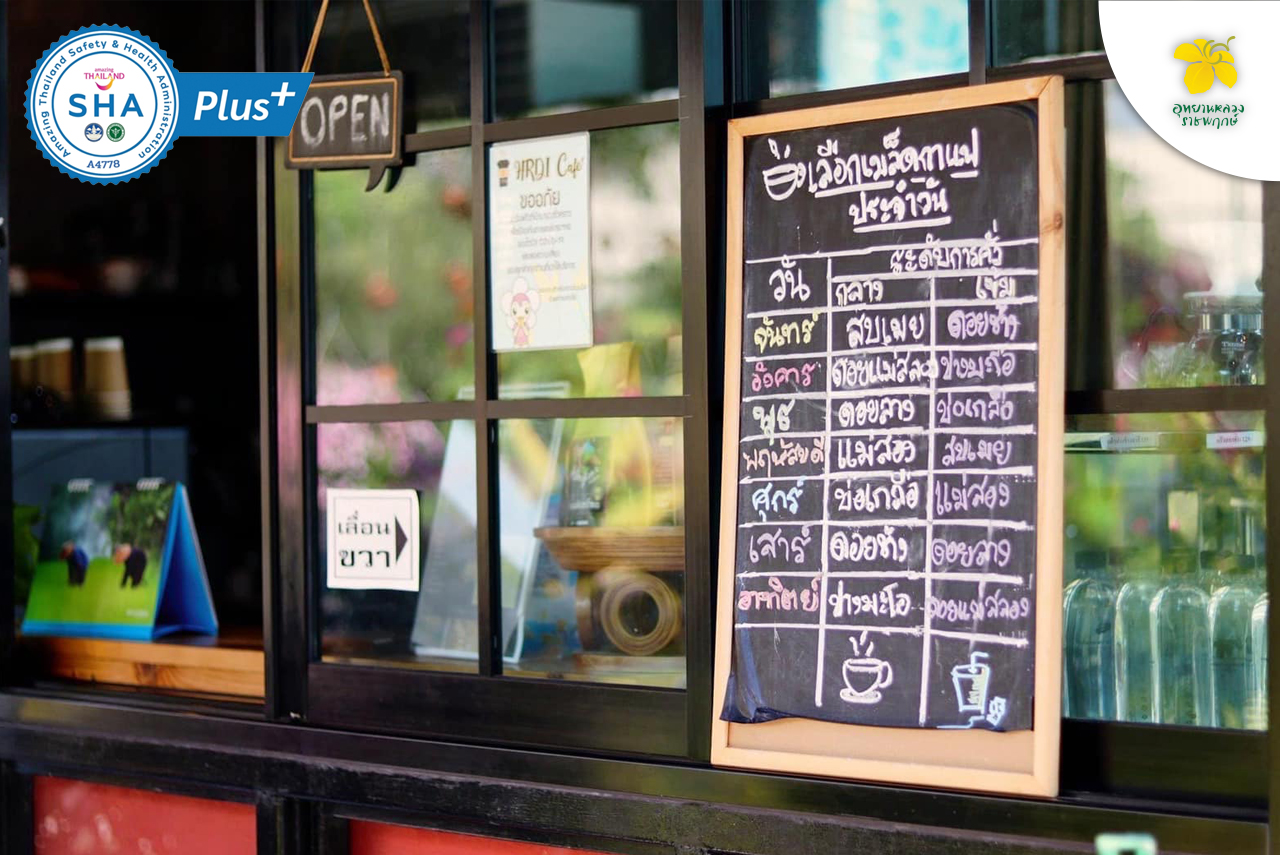 Amazing Thailand Safety & Health Administration
amazing
THAILAND
SHA
A4778
Plus+
อุทยานหลวง
ราชพฤกษ์
OPEN
HRDI Café
ขออภัย
เลื่อน
ขวา
เลือกเมล็ดกาแฟ
ประจำวัน
วัน ระดับการคั่ว
กลาง เข้ม
จันทร์ สบเมย ดอยช้าง
อังคาร ดอยแม่สลอง ปางมะโอ
พุธ ดอยลาง บ่อเกลือ
พฤหัสบดี แม่สอง สบเมย
ศุกร์ บ่อเกลือ แม่สอง
เสาร์ ดอยช้าง ดอยลาง
อาทิตย์ ปางมะโอ ดอยแม่สลอง